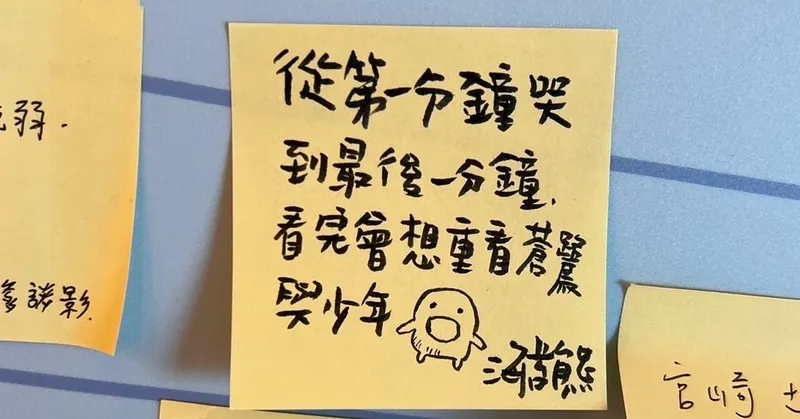 弱.
從第一分鐘哭
到最後一分鐘,
看完會想重看蒼鷺
與少年
海苔熊
宮崎